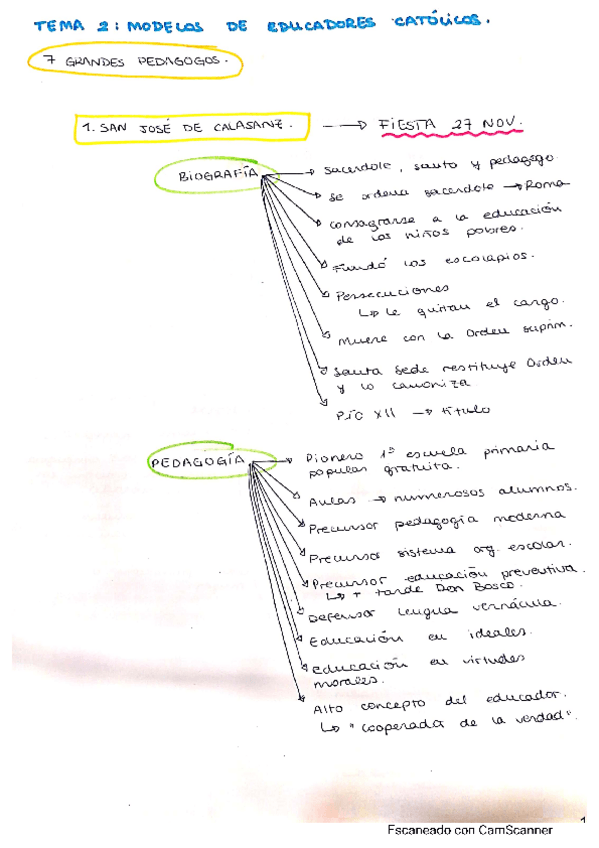 TEMA 2: MODELOS DE EDUCADORES CATÓLICOS.
7 GRANDES PEDAGOGOS.
1. SAN JOSÉ DE CALASANZ. → FIESTA 27 NOV.
BIOGRAFÍA
→ Sacerdote, santo y pedagogo
→ Se ordena sacerdote → Roma
→ Consagrarse a la educación
de los niños pobres.
→ Fundó los escolapios.
→ Persecuciones
↳ Le quitan el cargo.
→ Muere con la Orden suprim.
→ Santa Sede restituye Orden
y lo canoniza.
→ PÍO XII → título
PEDAGOGÍA
→ Pionero 1ª escuela primaria
popular gratuita.
→ Aulas → numerosos alumnos.
→ Precursor pedagogía moderna
→ Precursor sistema org. escolar.
→ Precursor educación preventiva.
↳ + tarde Don Bosco.
→ Defensor lengua vernácula.
→ Educación en ideales.
→ educación en virtudes
morales.
→ Alto concepto del educador.
↳ "cooperador de la verdad".
1
Escaneado con CamScanner